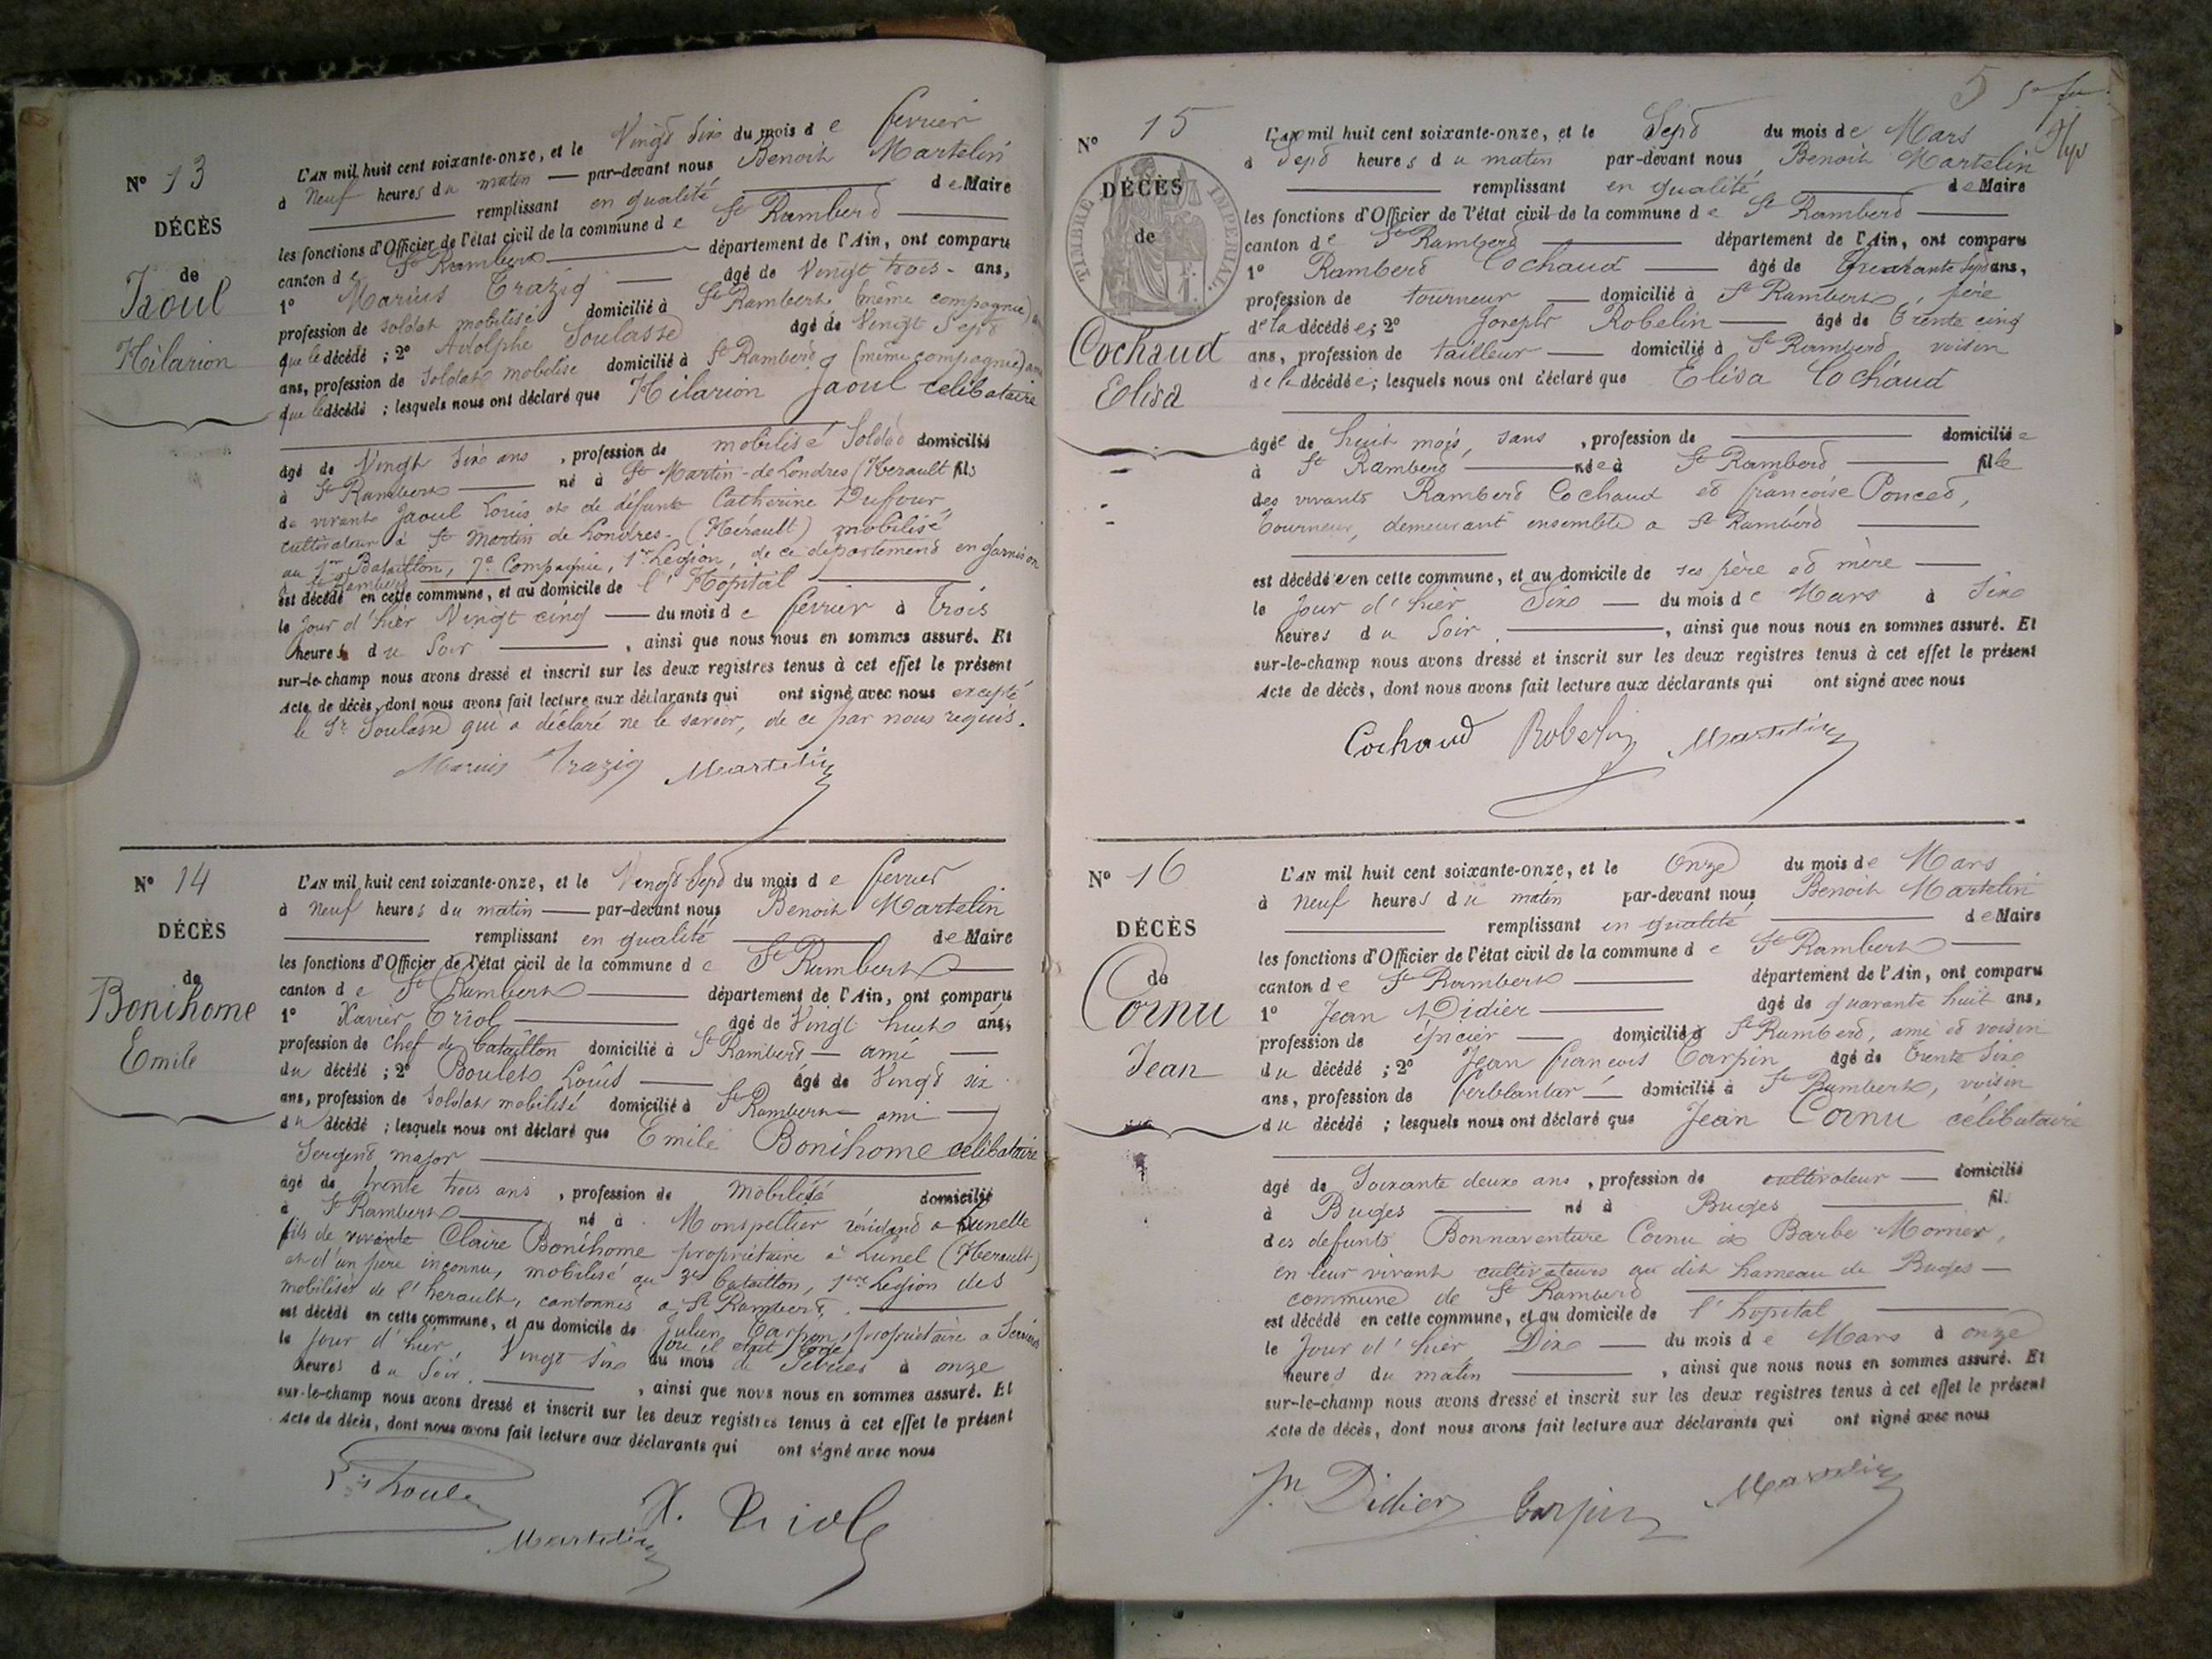 N° 13
DÉCÈS
de
Jaoul
Hilarion
L'AN mil huit cent soixante-onze, et le Vingt Six du mois de fevrier
à Neuf heures du matin — par-devant nous Benoit Martelin
remplissant en qualité de Maire
les fonctions d'Officier de l'état civil de la commune de St Rambert
canton de St Rambert département de l'Ain, ont comparu
1° Marius Trazig âgé de Vingt trois - ans,
profession de soldat mobilisé domicilié à St Rambert (même compagnie)
que le décédé ; 2° Adolphe Soulasse âgé de Vingt Sept
ans, profession de Soldat mobilisé domicilié à St Rambert (même compagnie)
que le décédé ; lesquels nous ont déclaré que Hilarion Jaoul celibataire
âgé de Vingt Six ans , profession de mobilisé Soldat domicilié
à St Rambert né à St Martin-de Londres (Herault fils
de vivant Jaoul Louis et de défunte Catherine Dufour,
cultivateur à St Martin de Londres - (Hérault) mobilisé
au 1er Bataillon, 7e Compagnie, 1ère Légion, de ce département en garnison
à St Rambert
est décédé en cette commune, et au domicile de l'Hopital
le Jour d'hier Vingt cinq — du mois de fevrier à Trois
heures du Soir , ainsi que nous nous en sommes assuré. Et
sur-le-champ nous avons dressé et inscrit sur les deux registres tenus à cet effet le présent
Acte de décès, dont nous avons fait lecture aux déclarants qui ont signé avec nous excepté
le Sr Soulasse qui a déclaré ne le savoir, de ce par nous requis.
Marius Trazig Martelin
N° 14
DÉCÈS
de
Bonihome
Emile
L'AN mil huit cent soixante-onze, et le Vingt Sept du mois de fevrier
à Neuf heures du matin — par-devant nous Benoit Martelin
remplissant en qualité de Maire
les fonctions d'Officier de l'état civil de la commune de St Rambert
canton de St Rambert département de l'Ain, ont comparu
1° Xavier Triol âgé de Vingt huit ans,
profession de Chef de bataillon domicilié à St Rambert — ami
du décédé ; 2° Boulet Louis âgé de Vingt six
ans, profession de Soldat mobilisé domicilié à St Rambert — ami
du décédé ; lesquels nous ont déclaré que Emile Bonihome celibataire
Sergent major
âgé de trente trois ans , profession de Mobilisé domicilié
à St Rambert né à Montpellier résidant a Lunelle
fils de vivante Claire Bonihome propriétaire à Lunel (Herault)
et d'un père inconnu, mobilisé au 3e bataillon, 1ère Légion des
mobilisés de l'herault, cantonnés a St Rambert.
est décédé en cette commune, et au domicile de Julien Carpin, propriétaire a
où il etait logé
le Jour d'hier, Vingt Six du mois de Fevrier à onze
heures du Soir. , ainsi que nous nous en sommes assuré. Et
sur-le-champ nous avons dressé et inscrit sur les deux registres tenus à cet effet le présent
Acte de décès, dont nous avons fait lecture aux déclarants qui ont signé avec nous
Martelin X. Triol
5
N° 15
TIMBRE IMPÉRIAL.
DÉCÈS
de
Cochaud
Elisa
L'AN mil huit cent soixante-onze, et le Sept du mois de Mars
à Sept heures du matin par-devant nous Benoit Martelin
remplissant en qualité de Maire
les fonctions d'Officier de l'état civil de la commune de St Rambert
canton de St Rambert département de l'Ain, ont comparu
1° Rambert Cochaud âgé de Quarante Sept ans,
profession de tourneur domicilié à St Rambert, père
de la décédée; 2° Joseph Robelin âgé de Trente cinq
ans, profession de tailleur domicilié à St Rambert voisin
de la décédée; lesquels nous ont déclaré que Elisa Cochaud
âgée de huit mois, sans , profession de domiciliée
à St Rambert née à St Rambert fille
des vivants Rambert Cochaud et françoise Poncet,
tourneur, demeurant ensemble a St Rambert
est décédée en cette commune, et au domicile de ses père et mère
le Jour d'hier Six — du mois de Mars à Six
heures du Soir , ainsi que nous nous en sommes assuré. Et
sur-le-champ nous avons dressé et inscrit sur les deux registres tenus à cet effet le présent
Acte de décès, dont nous avons fait lecture aux déclarants qui ont signé avec nous
Cochaud Robelin Martelin
N° 16
DÉCÈS
de
Cornu
Jean
L'AN mil huit cent soixante-onze, et le Onze du mois de Mars
à Neuf heures du matin par-devant nous Benoit Martelin
remplissant en qualité de Maire
les fonctions d'Officier de l'état civil de la commune de St Rambert
canton de St Rambert département de l'Ain, ont comparu
1° Jean Didier âgé de quarante huit ans,
profession de épicier domicilié à St Rambert, ami et voisin
du décédé ; 2° Jean francois Carpin âgé de Trente Six
ans, profession de ferblantier domicilié à St Rambert, voisin
du décédé ; lesquels nous ont déclaré que Jean Cornu célibataire
âgé de Soixante deux ans , profession de cultivateur domicilié
à Buges né à Buges fils
des defunts Bonnaventure Cornu et Barbe Mornier,
en leur vivant cultivateurs au dit hameau de Buges —
commune de St Rambert
est décédé en cette commune, et au domicile de l'hopital
le Jour d'hier Dix — du mois de Mars à onze
heures du matin , ainsi que nous nous en sommes assuré. Et
sur-le-champ nous avons dressé et inscrit sur les deux registres tenus à cet effet le présent
Acte de décès, dont nous avons fait lecture aux déclarants qui ont signé avec nous
Jn Didier Carpin Martelin